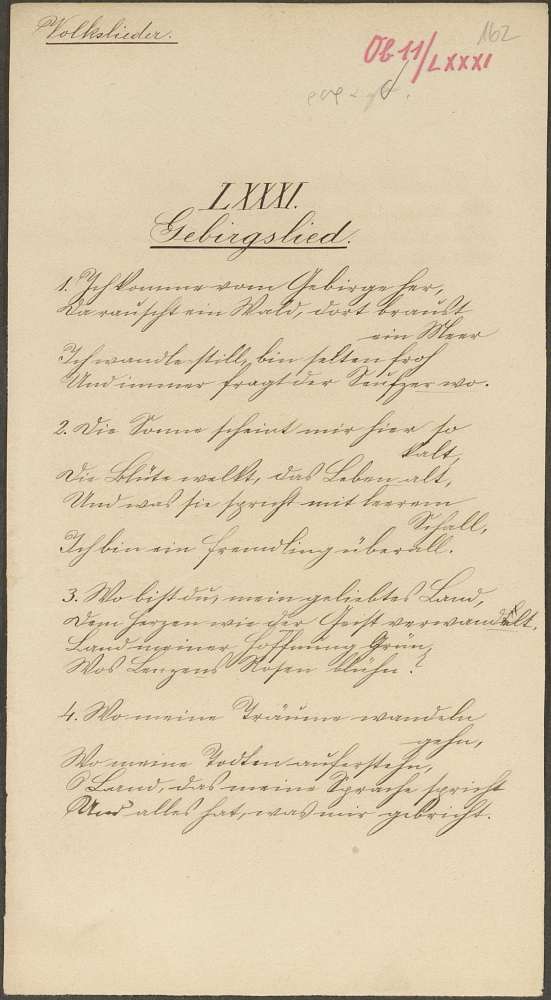 Volkslieder.
162
Ob 11/LXXXI
LXXXI.
Gebirgslied.
1. Ich komme vom Gebirge her,
Da rauscht ein Wald, dort braust
ein Meer
Ich wandle still, bin selten froh
Und immer fragt der Seufzer wo.
2. Die Sonne scheint mir hier so
kalt,
Die Blüte welkt, das Leben alt,
Und was sie spricht mit leerem
Schall,
Ich bin ein Fremdling überall.
3. Wo bist du, mein geliebtes Land,
Dem Herzen wie der Geist verwandt
Land meiner Hoffnung Grün,
Wos Lenzens Rosen blühn?
4. Wo meine Träume wandeln
gehn,
Wo meine Todten auferstehn,
O Land, das meine Sprache spricht
Und alles hat, was mir gebricht.